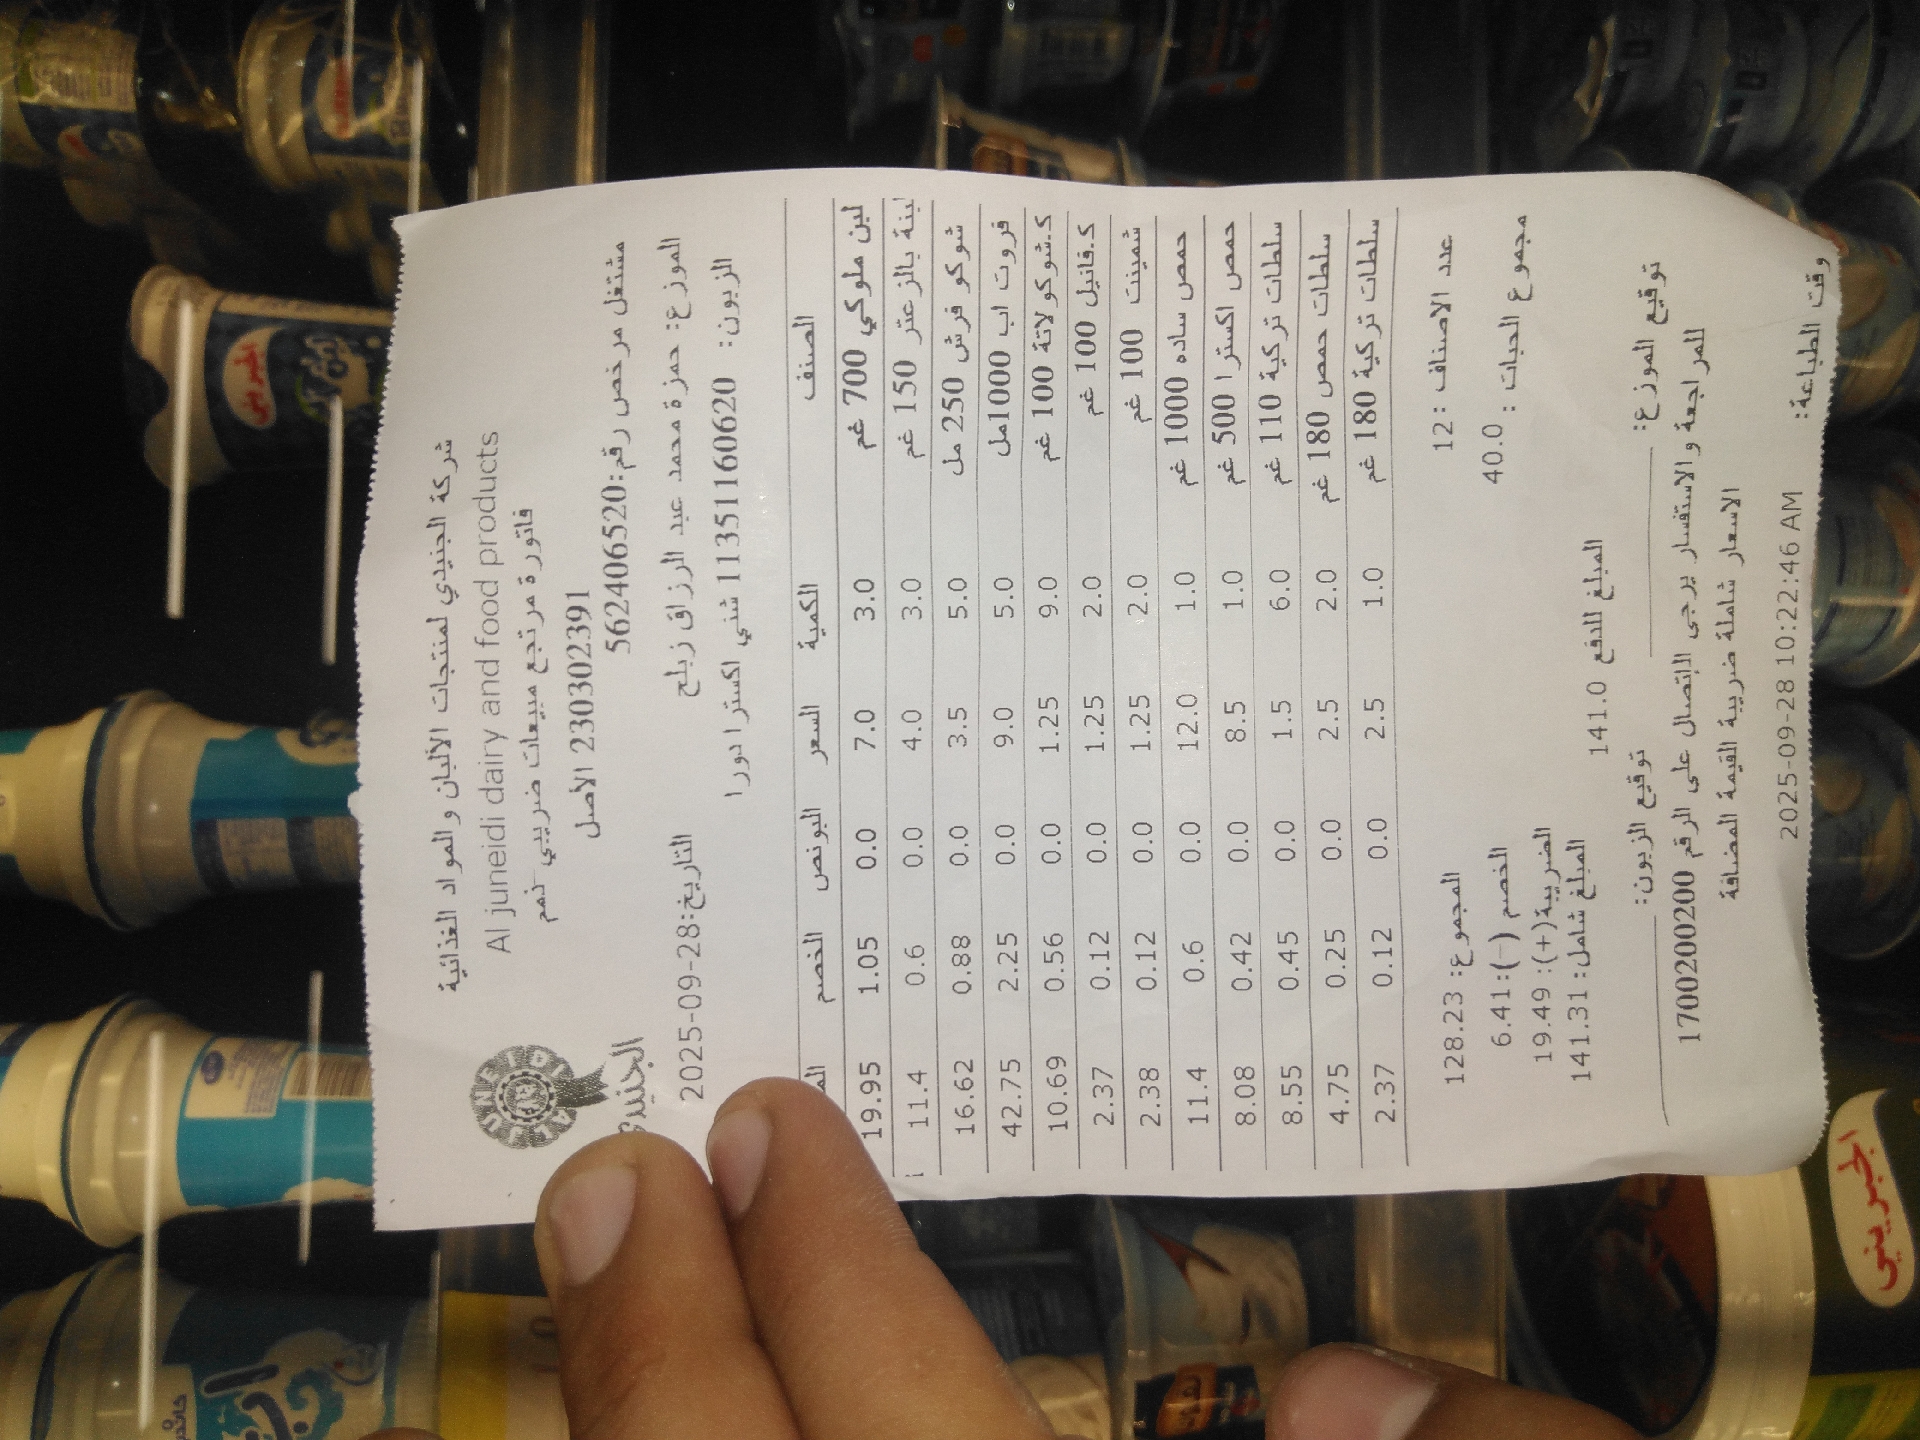 شركة الجنيدي لمنتجات الألبان والمواد الغذائية
Al juneidi dairy and food products
فاتورة مرتجع مبيعات ضريبي-ذمم
230302391 الأصل
مشتغل مرخص رقم:562406520
AL JUNEIDI
الجنيدي
الموزع: حمزة محمد عبد الرزاق زبلح
التاريخ:28-09-2025
الزبون: 11351160620 شني اكسترا دورا
الصنف الكمية السعر البونص الخصم
لبن ملوكي 700 غم 3.0 7.0 0.0 1.05 19.95
لبنة بالزعتر 150 غم 3.0 4.0 0.0 0.6 11.4
شوكو فرش 250 مل 5.0 3.5 0.0 0.88 16.62
فروت اب 1000مل 5.0 9.0 0.0 2.25 42.75
ك.شوكولاتة 100 غم 9.0 1.25 0.0 0.56 10.69
ك.فانيل 100 غم 2.0 1.25 0.0 0.12 2.37
شمينت 100 غم 2.0 1.25 0.0 0.12 2.38
حمص ساده 1000 غم 1.0 12.0 0.0 0.6 11.4
حمص اكسترا 500 غم 1.0 8.5 0.0 0.42 8.08
سلطات تركية 110 غم 6.0 1.5 0.0 0.45 8.55
سلطات حمص 180 غم 2.0 2.5 0.0 0.25 4.75
سلطات تركية 180 غم 1.0 2.5 0.0 0.12 2.37
عدد الاصناف :12
المجموع: 128.23
مجموع الحبات : 40.0
الخصم (-):6.41
الضريبة(+): 19.49
المبلغ شامل: 141.31
المبلغ للدفع 141.0
توقيع الموزع:
توقيع الزبون:
للمراجعة والاستفسار يرجى الإتصال على الرقم 1700200200
الاسعار شاملة ضريبة القيمة المضافة
وقت الطباعة: 2025-09-28 10:22:46 AM
الجبريني
الجبريني